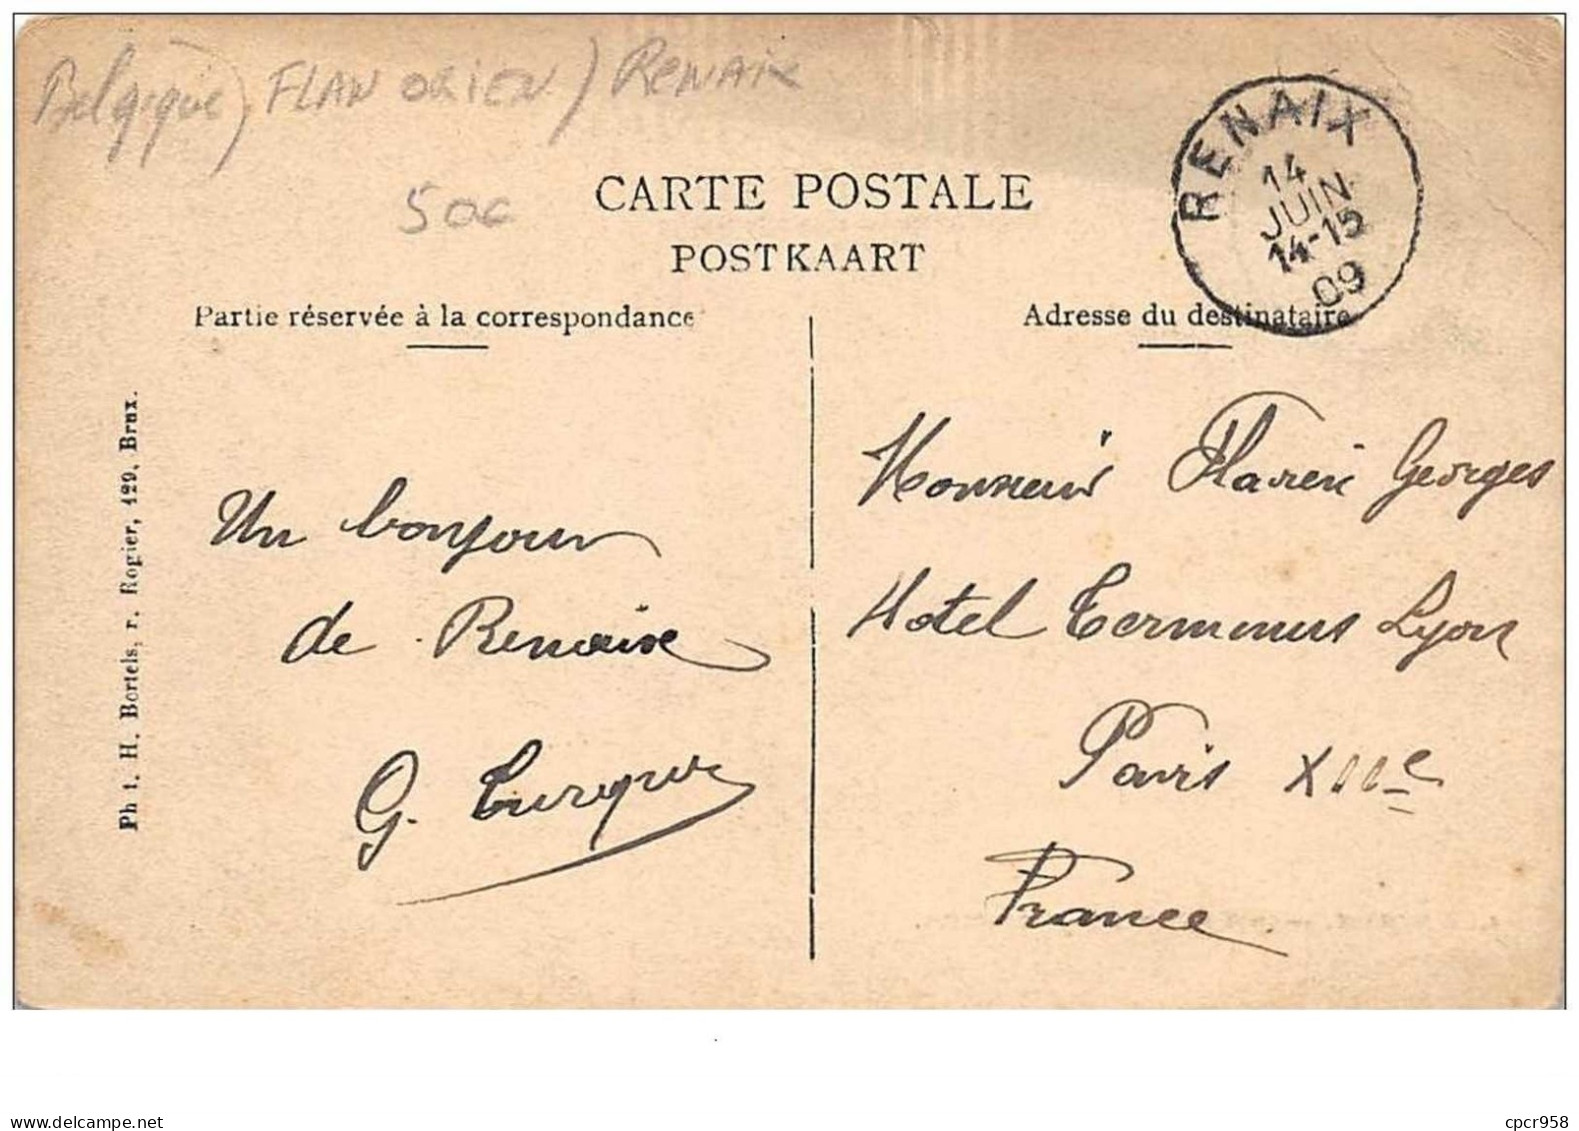 Belgique) FLAN ORIEN) RENAIX
50c
CARTE POSTALE
POSTKAART
RENAIX
14
JUIN
14-15
09
Partie réservée à la correspondance
Adresse du destinataire
Ph t. H. Bertels, r. Rogier, 129, Brux.
Un bonjour
de Renaix
G.
Monsieur Georges
Hotel Terminus Lyon
Paris XIIe
France
cpcr958